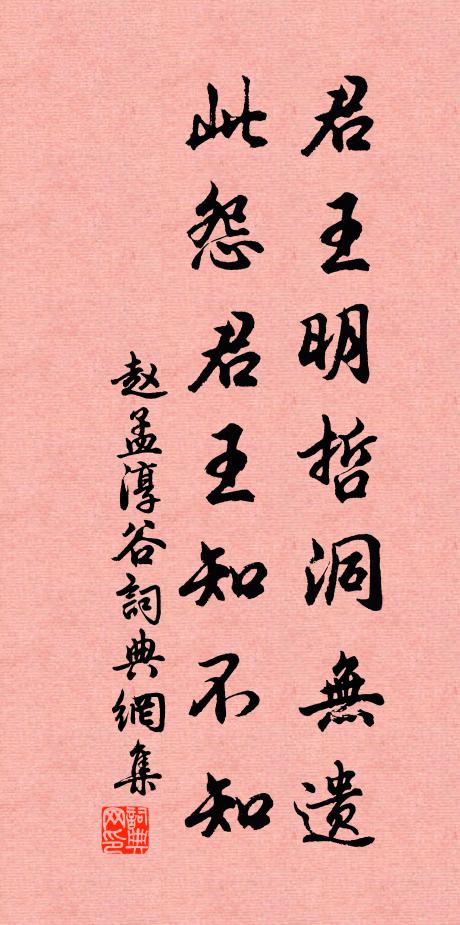 君王明哲洞無遗
此怨君王知不知
赵孟淳谷詞典網集
詞典网印